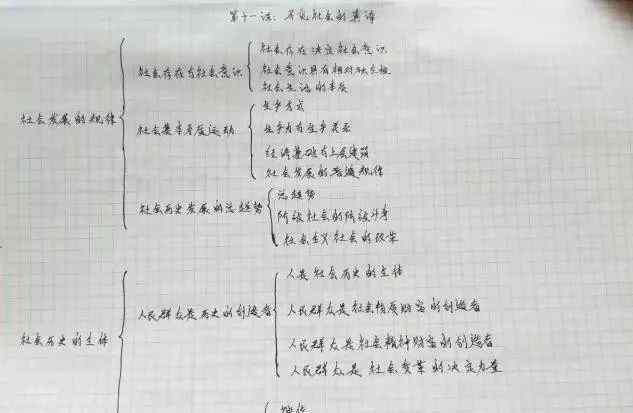 第十一课：寻觅社会的真谛
社会发展的规律
社会存在与社会意识
社会存在决定社会意识
社会意识具有相对独立性
社会生活的本质
社会基本矛盾运动
生产方式
生产力与生产关系
经济基础与上层建筑
社会发展的普遍规律
社会历史发展的总趋势
总趋势
阶级社会的阶级斗争
社会主义社会的改革
社会历史的主体
人民群众是历史的创造者
人是社会历史的主体
人民群众是社会物质财富的创造者
人民群众是社会精神财富的创造者
人民群众是社会变革的决定力量